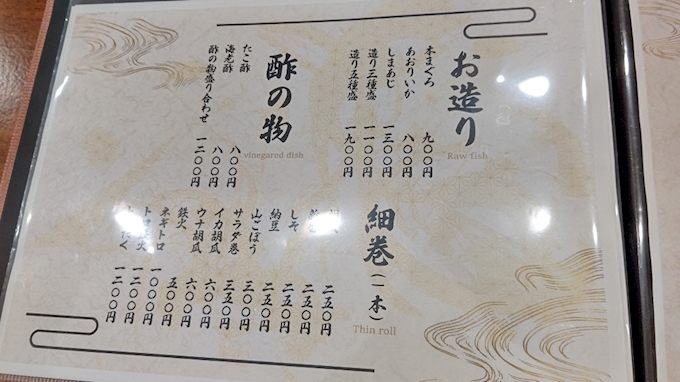 お造り
Raw fish
本まぐろ 九〇〇円
あおりいか 八〇〇円
しまあじ 一三〇〇円
造り三種盛 一一〇〇円
造り五種盛 一九〇〇円
酢の物
vinegared dish
たこ酢 八〇〇円
海老酢 八〇〇円
酢の物盛り合わせ 一二〇〇円
細巻(一本)
Thin roll
二五〇円
二五〇円
しそ 二五〇円
納豆 二五〇円
山ごぼう 三〇〇円
サラダ巻 三五〇円
イカ胡瓜 六〇〇円
ウナ胡瓜 六〇〇円
鉄火 五〇〇円
ネギトロ 一〇〇〇円
一二〇〇円
一二〇〇円